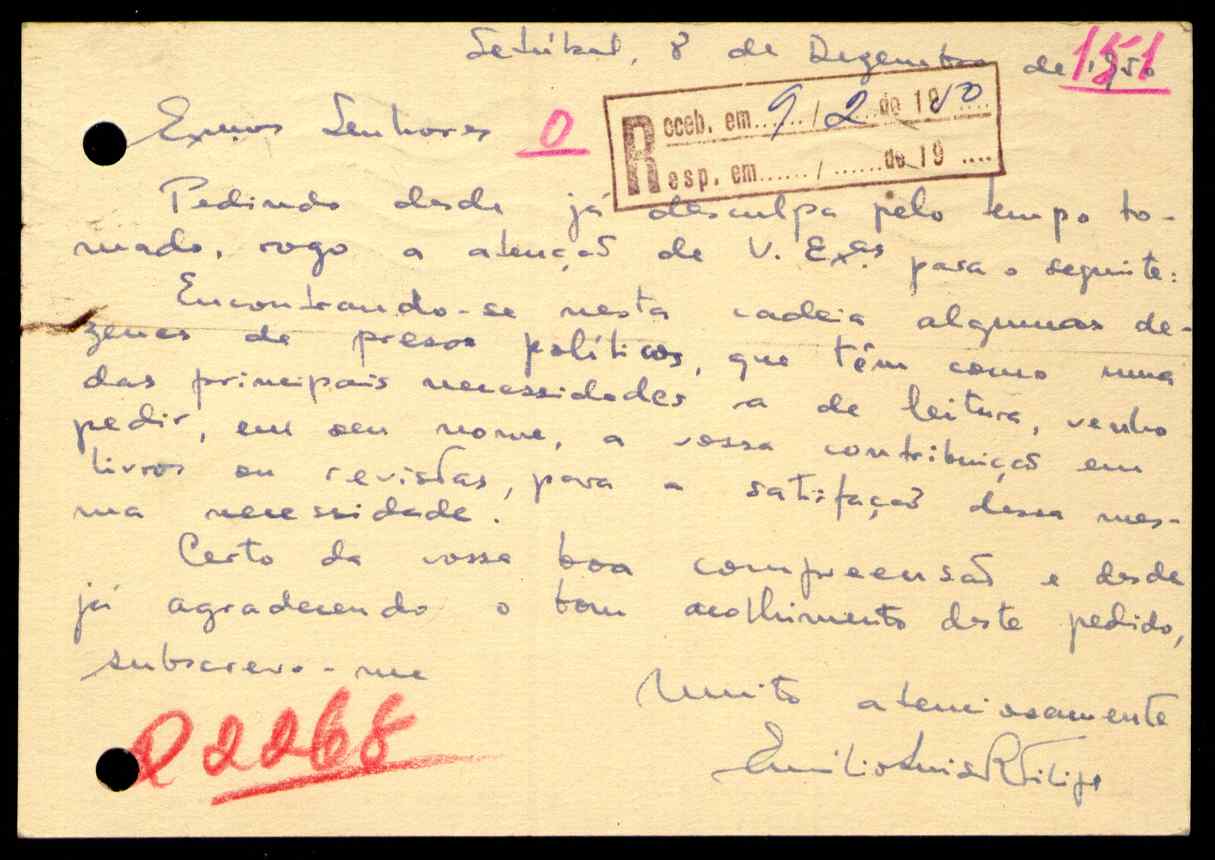 Setúbal, 8 de Dezembro de 1950
151
Exmos Senhores
0
Receb. em 9 / 2 de 1950
Resp. em ...... / ...... de 19 ....
Pedindo desde já desculpa pelo tempo to-
mado, rogo a atenção de V. Exas para o seguinte:
Encontrando-se nesta cadeia algumas de-
zenas de presos políticos, que têm como uma
das principais necessidades a de leitura, venho
pedir, em seu nome, a vossa contribuição em
livros ou revistas, para a satisfação dessa mes-
ma necessidade.
Certo da vossa boa compreensão e desde
já agradecendo o bom acolhimento deste pedido,
subscrevo-me
Muito atenciosamente
Emílio Luis R Filipe
R 2268